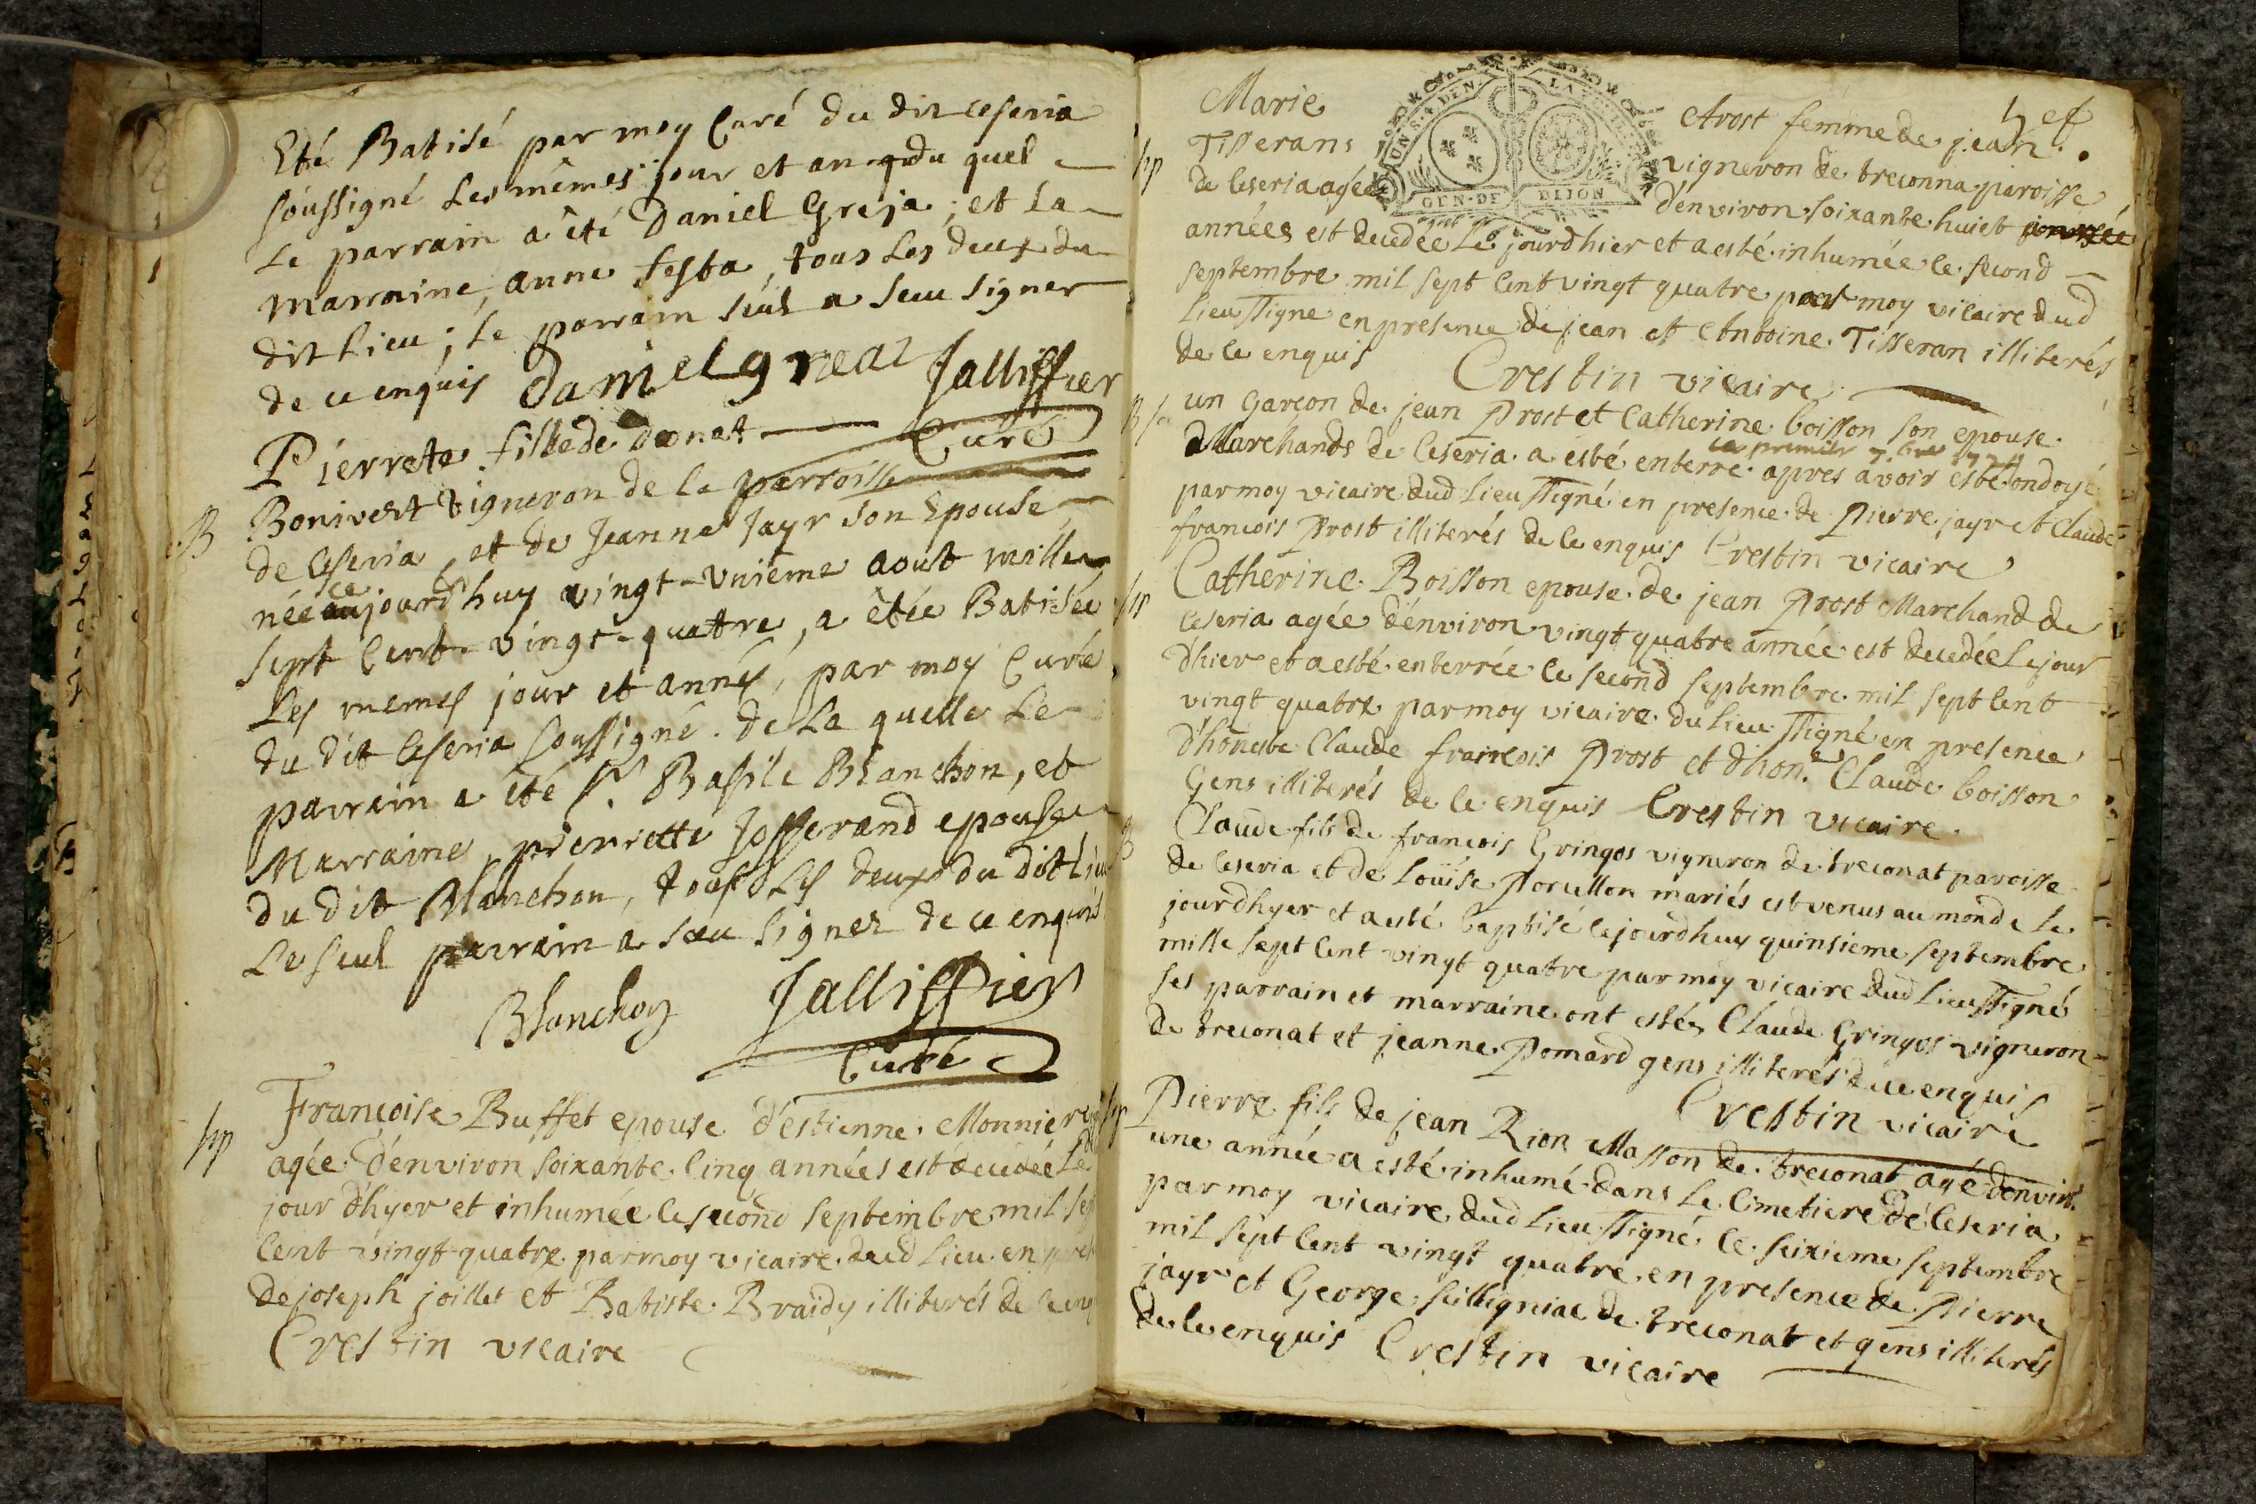 Eté Batisé par moy Curé du dit Ceseria
soussigné les mêmes jour et an que du quel
Le parrain a été Daniel Greja ; et la
marraine, anne festa, tous les deux du
dit Lieu ; le parrain seul a sceu signer
de ce enquis Daniel grear Jalliffier
Curé
Pierrete fille de donat
B Bonivert Vigneron de la parroisse
de Ceseria, et de Jeanne Jayr son Epouse
née ce aujourdhuy vingt-unième aout mille
sept Cent-vingt-quattre, a êtée Batisée
Les memes jour et année, par moy Curé
du dit Ceseria soussigné. de La quelle Le
parrain a été Sr. Basile Blanchon, et
Marraine, pierrette Josserand epouse
du dit Blanchon, tous Les deux du dit Lieu
Le seul parrain a sceu signer de ce enquis
Blanchon Jalliffier
Curé
Françoise Buffet epouse d'estienne Monnier
Sep agée d'environ soixante cinq années est decedée Le
jour d'hyer et inhumée le second septembre mil sept
Cent vingt quatre par moy vicaire dud Lieu en
de joseph joillet et Batiste Braidy illiterés de ce
Crestin vicaire
Marie Prost femme de jean
Sep Tisserans vigneron de treconna paroisse
de Ceseria agée d'environ soixante huict
GEN. DE DIJON
années est decedée Le jourdhier et a esté inhumée le second
septembre mil sept Cent vingt quatre par moy vicaire dud
Lieu ssigne en presence de jean et Antoine Tisseran illiterés
de Ce enquis Crestin vicaire
un garçon de jean Prost et Catherine boisson son epouse
Marchands de Ceseria a esté enterré le premier 7bre 1724 apres avoir esté ondoyé
par moy vicaire dud Lieu ssigné en presence de Pierre jayr et Claude
francois Prost illiterés de Ce enquis Crestin vicaire
Sep Catherine Boisson epouse de jean Prost Marchand de
Ceseria agée d'environ vingt quatre année est decedée Le jour
d'hier et a esté enterrée le second septembre mil sept Cent
vingt quatre par moy vicaire du Lieu ssigné en presence
d'honneste Claude francois Prost et d'hon.e Claude boisson
Gens illiterés de Ce enquis Crestin vicaire
Claude fils de francois Gringos vigneron de treconat paroisse
de Ceseria et de Loüise Porcellon mariés est venus au monde le
jourdhyer et a esté baptisé le jourdhuy quinsieme septembre
mille sept Cent vingt quatre par moy vicaire dud Lieu ssigné
ses parrain et marraine ont estés Claude Gringos vigneron
de treconat et jeanne Pomard gens illiterés de ce enquis
Crestin vicaire
Pierre fils de jean Rion Masson de treconat agé d'environ
une année a esté inhumé dans le Cimetiere de Ceseria
par moy vicaire dud Lieu ssigné le seixieme septembre
mil sept Cent vingt quatre en presence de Pierre
jayr et George Silligniac de treconat et gens illiterés
de Ce enquis Crestin vicaire